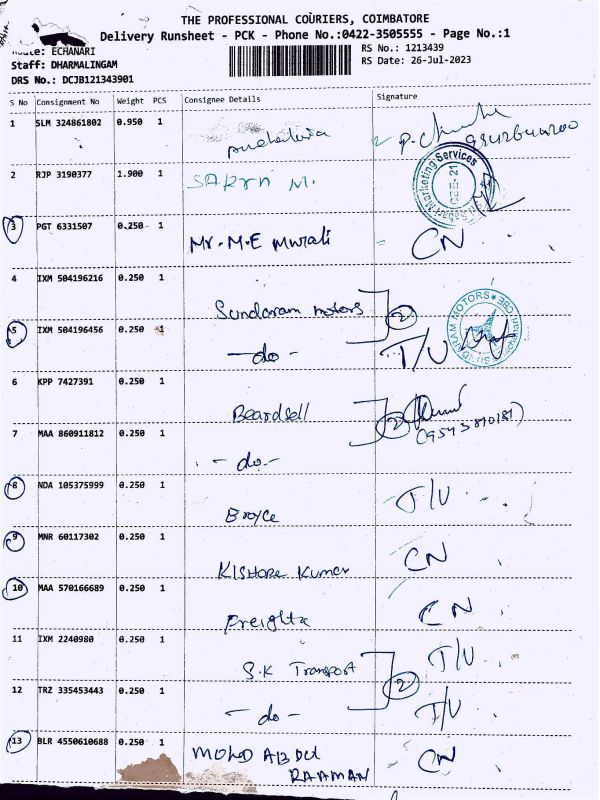 THE PROFESSIONAL COURIERS, COIMBATORE
Delivery Runsheet - PCK - Phone No.:0422-3505555 - Page No.:1
Route: ECHANARI
RS No.: 1213439
Staff: DHARMALINGAM
RS Date: 26-Jul-2023
DRS No.: DCJB121343901
S No Consignment No Weight PCS Consignee Details Signature
1 SLM 324861802 0.950 1
2 RJP 3190377 1.900 1 M.
3 PGT 6331507 0.250 1 Mr. M.E Murali CN
4 IXM 504196216 0.250 1 Sundaram motors 2
5 IXM 504196456 0.250 1 -do- T/U
SUNDARAM MOTORS CBE
6 KPP 7427391 0.250 1 Beardsell 2
7 MAA 860911812 0.250 1 -do-
8 NDA 105375999 0.250 1 Broyce T/U
9 MNR 60117302 0.250 1 Kishore Kumar CN
10 MAA 570166689 0.250 1 CN
11 IXM 2240980 0.250 1 S.K Transport 2 T/U
12 TRZ 335453443 0.250 1 -do- T/U
13 BLR 4550610688 0.250 1 MOHD ABDUL CN
RAAMAN